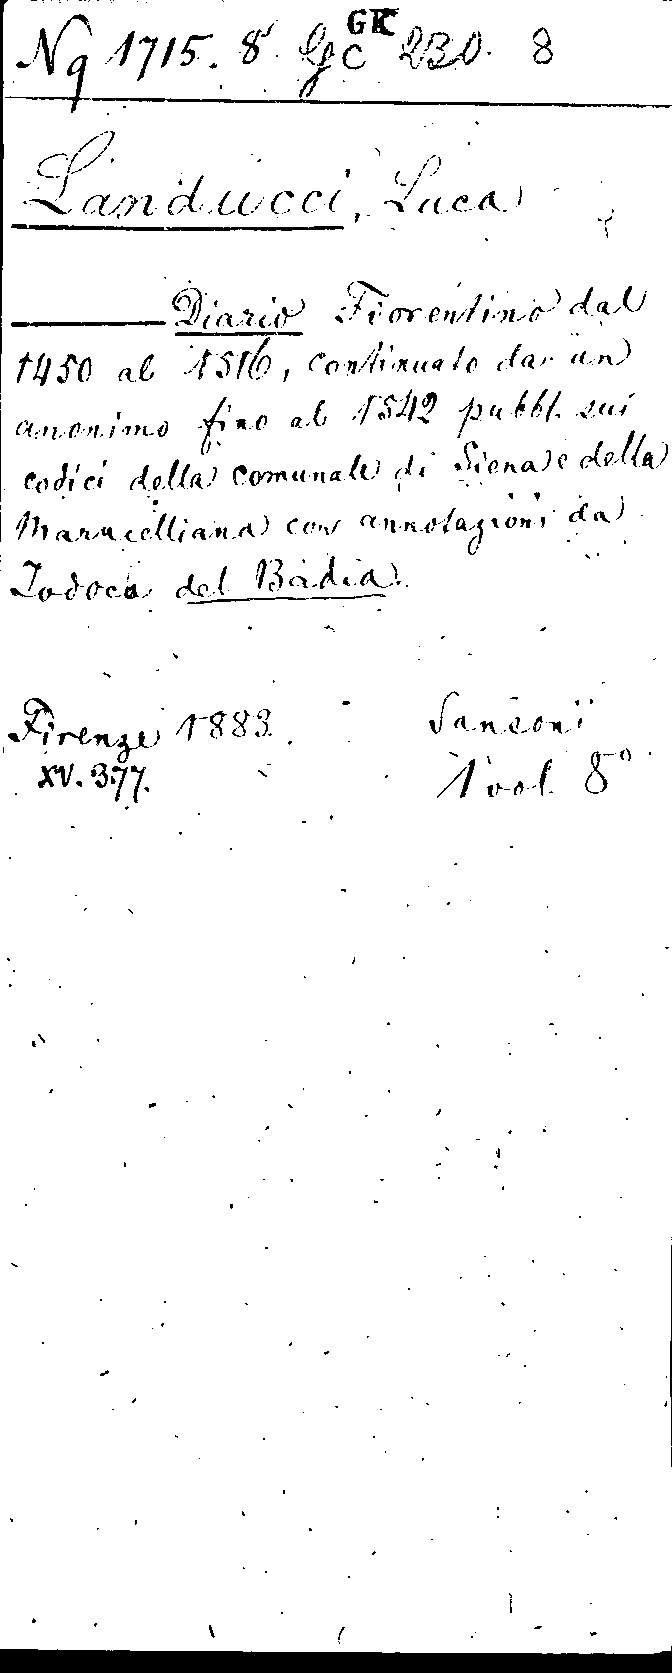 Nq 1715. 8 Gc GK 230. 8
Landucci, Luca
Diario Fiorentino dal
1450 al 1516, continuato da un
anonimo fino al 1542 pubbl. sui
codici della comunale di Siena e della
Marucelliana con annotazioni da
Jodoco del Badia.
Firenze 1883. Sansoni
XV. 377. 1 vol. 8°